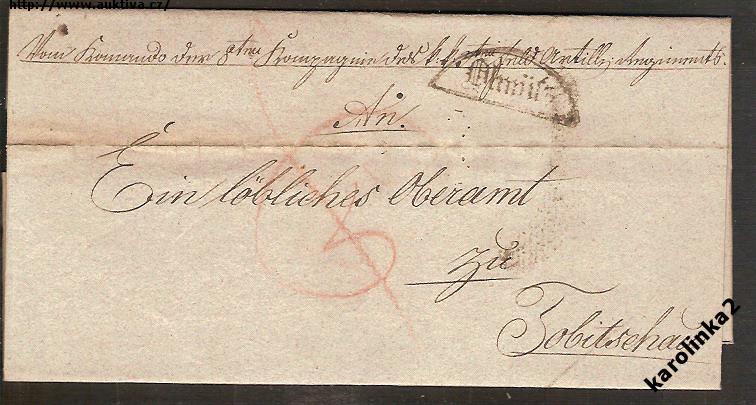 http://www.auktiva.cz/
Vom Komando der 8ten Kompagnie des k. k. Feld Artill. Regiments.
Olmütz
An
Ein löbliches Oberamt
zu
Tobitschau
karolinka2